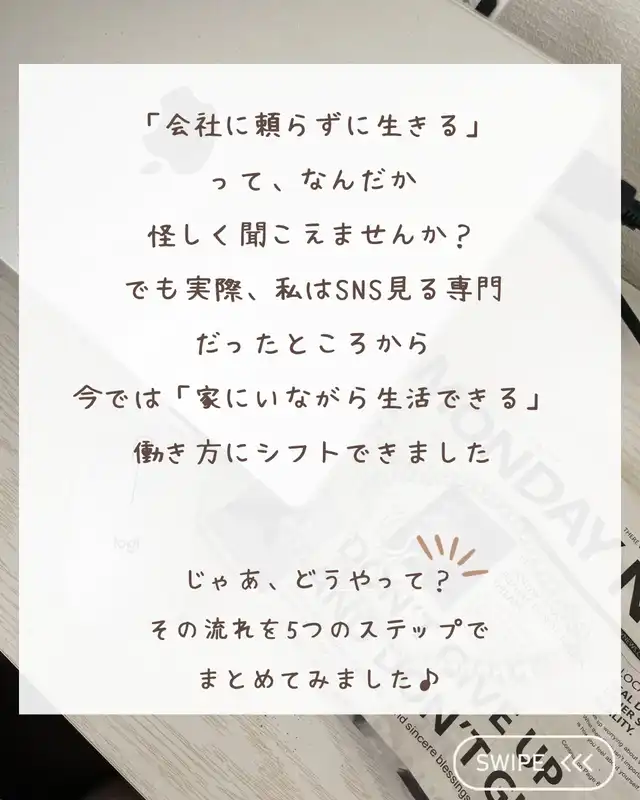 「会社に頼らずに生きる」
って、なんだか
怪しく聞こえませんか？
でも実際、私はSNS見る専門
だったところから
今では「家にいながら生活できる」
働き方にシフトできました
じゃあ、どうやって？
その流れを5つのステップで
まとめてみました♪
MONDAY
logi
DON'T GIVE UP
and sincere blessings
SWIPE <<<